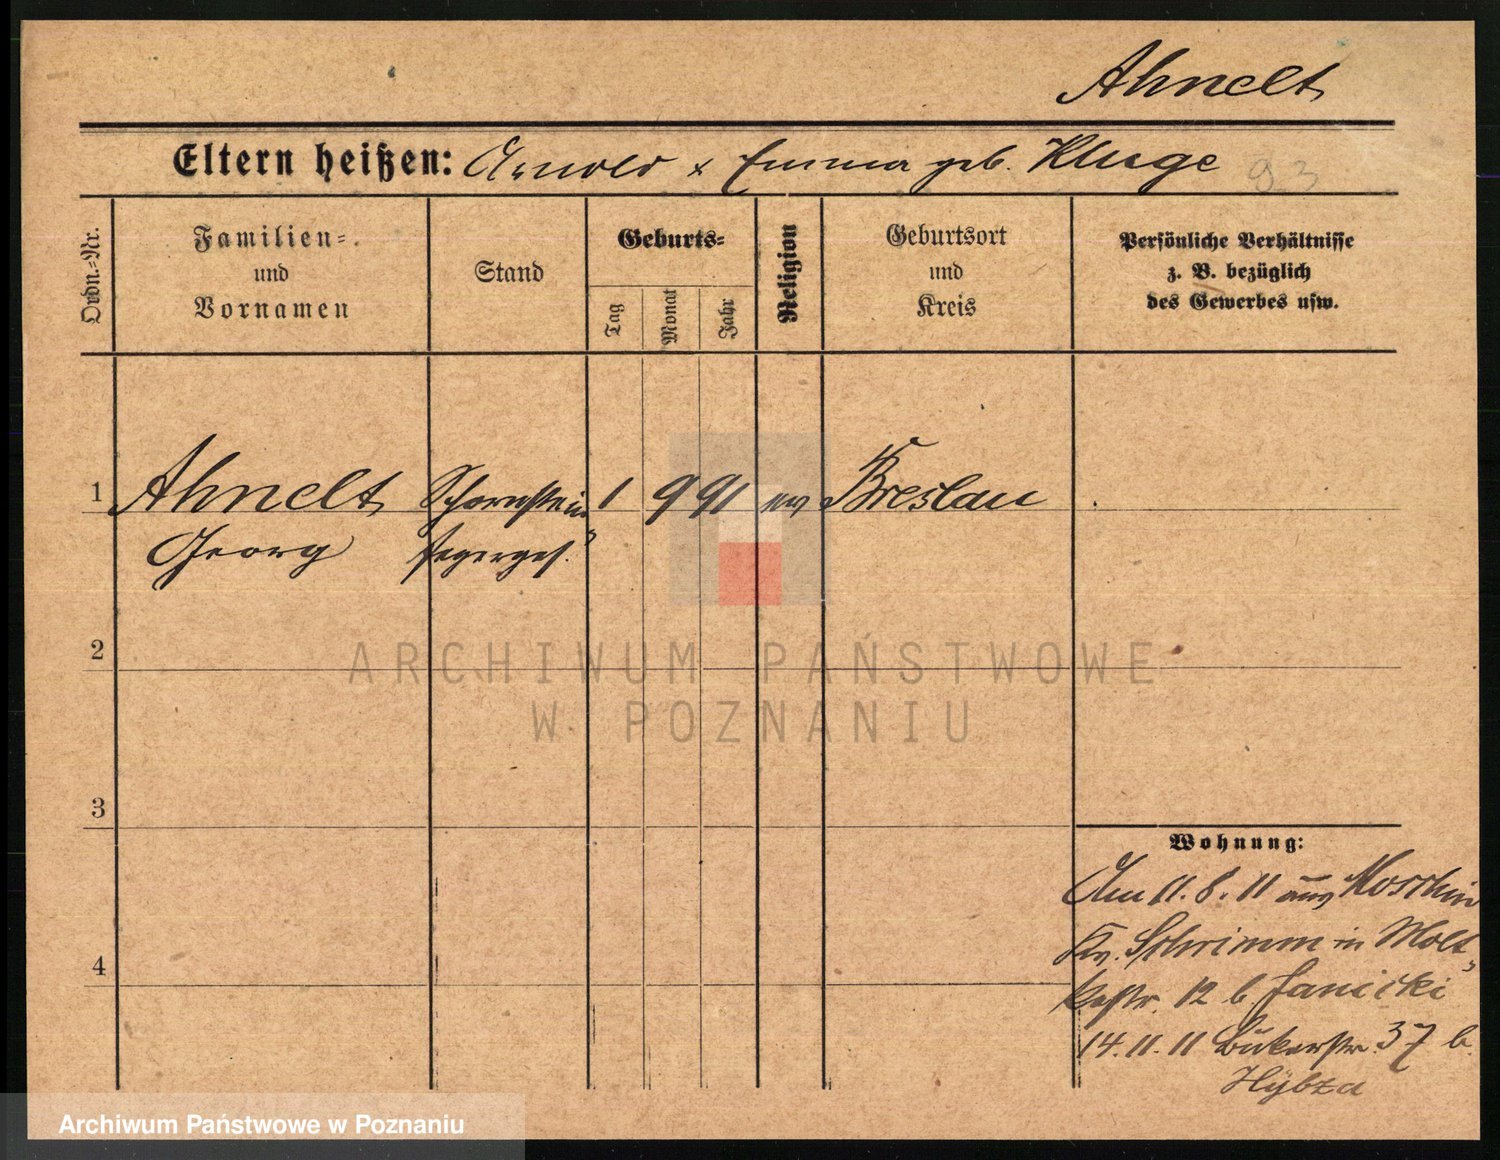 Ahnelt
Eltern heißen: Arnold & Emma geb. Kluge 93
Ordn.-Nr.
Familien-
und
Vornamen
Stand
Geburts-
Tag
Monat
Jahr
Religion
Geburtsort
und
Kreis
Persönliche Verhältnisse
z. B. bezüglich
des Gewerbes usw.
1 Ahnelt Schornstein 1 9 91 ev Breslau
Georg fegerges.
2
ARCHIWUM PAŃSTWOWE
W POZNANIU
3
Wohnung:
Am 11.8.11 aus Moschin
Kr. Schrimm in Molt
kestr. 12 b Janicki
4
14.11.11 Bukerstr. 37 b.
Hybza
Archiwum Państwowe w Poznaniu